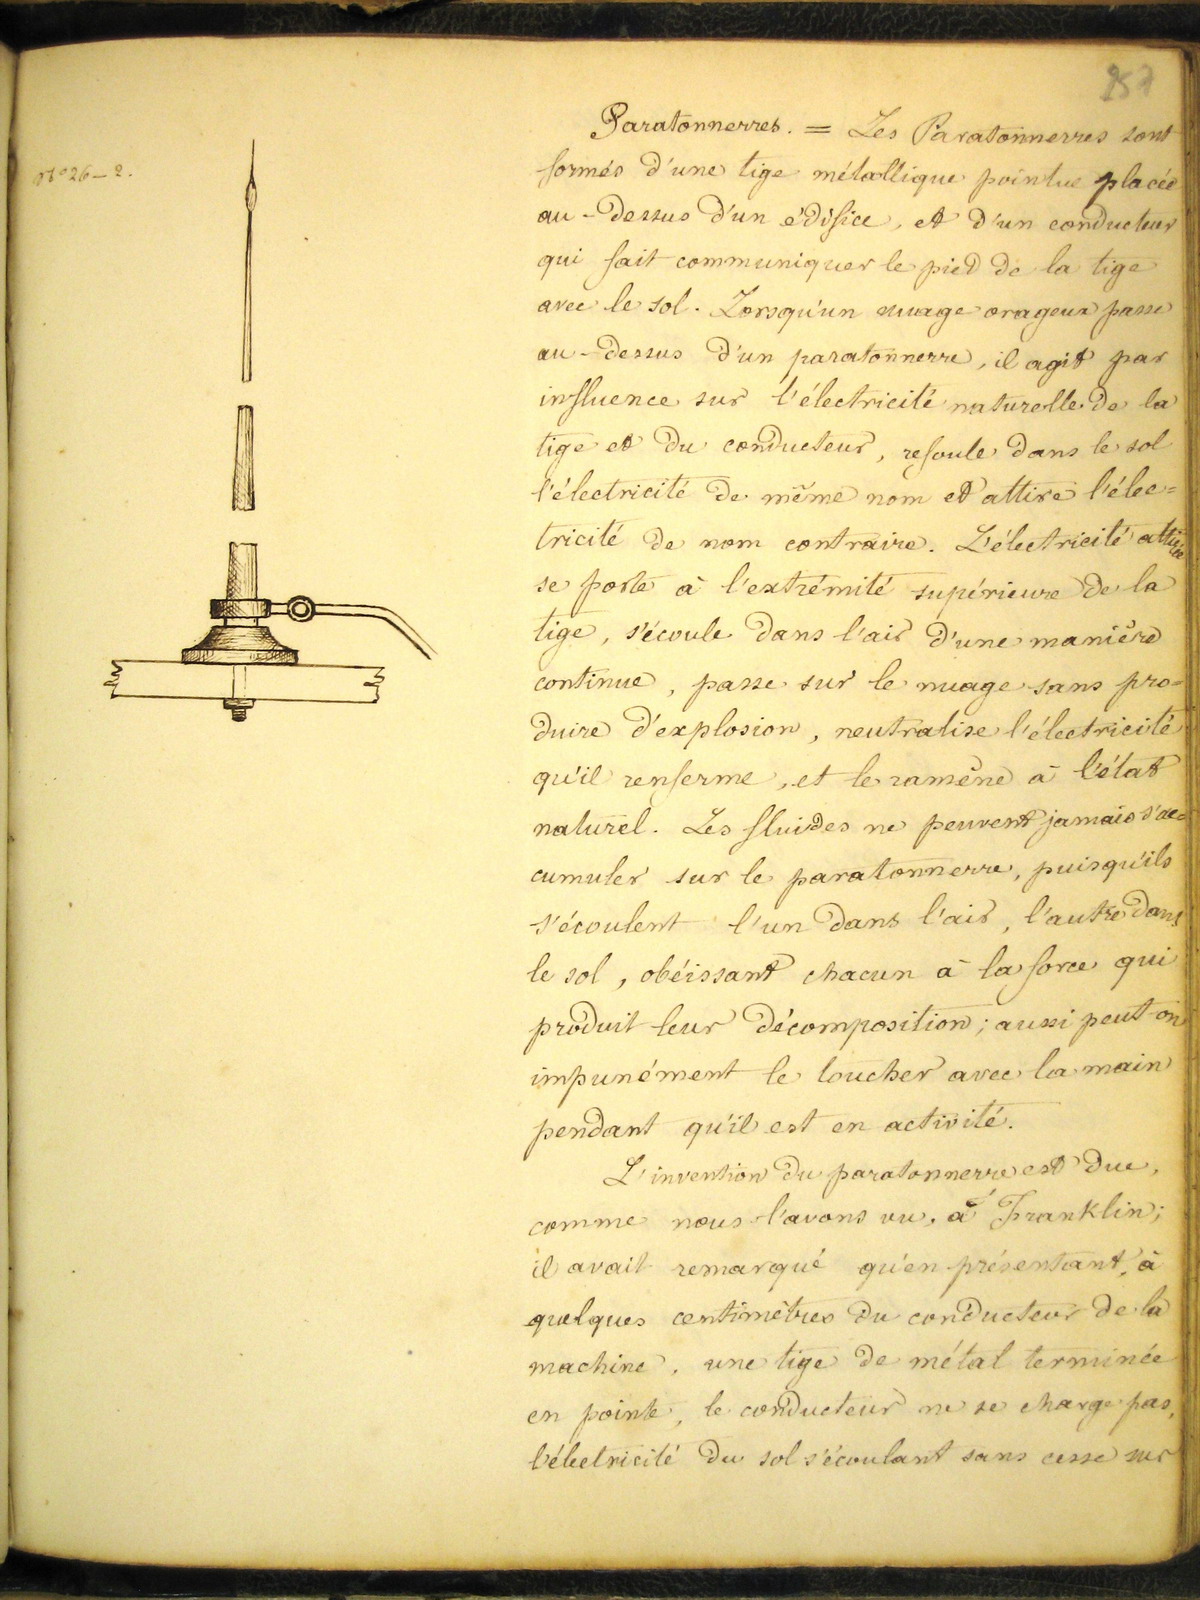 257
N° 26 - 2.
Paratonnerres. = Les Paratonnerres sont
formés d'une tige métallique pointue placée
au-dessus d'un édifice, et d'un conducteur
qui fait communiquer le pied de la tige
avec le sol. Lorsqu'un nuage orageux passe
au-dessus d'un paratonnerre, il agit par
influence sur l'électricité naturelle de la
tige et du conducteur, refoule dans le sol
l'électricité de même nom et attire l'élec=
tricité de nom contraire. L'électricité attirée
se porte à l'extrémité supérieure de la
tige, s'écoule dans l'air d'une manière
continue, passe sur le nuage sans pro=
duire d'explosion, neutralise l'électricité
qu'il renferme, et le ramène à l'état
naturel. Les fluides ne peuvent jamais s'ac=
cumuler sur le paratonnerre, puisqu'ils
s'écoulent l'un dans l'air, l'autre dans
le sol, obéissant chacun à la force qui
produit leur décomposition; aussi peut-on
impunément le toucher avec la main
pendant qu'il est en activité.
L'invention du paratonnerre est due,
comme nous l'avons vu, à Franklin;
il avait remarqué qu'en présentant, à
quelques centimètres du conducteur de la
machine, une tige de métal terminée
en pointe, le conducteur ne se charge pas,
l'électricité du sol s'écoulant sans cesse sur